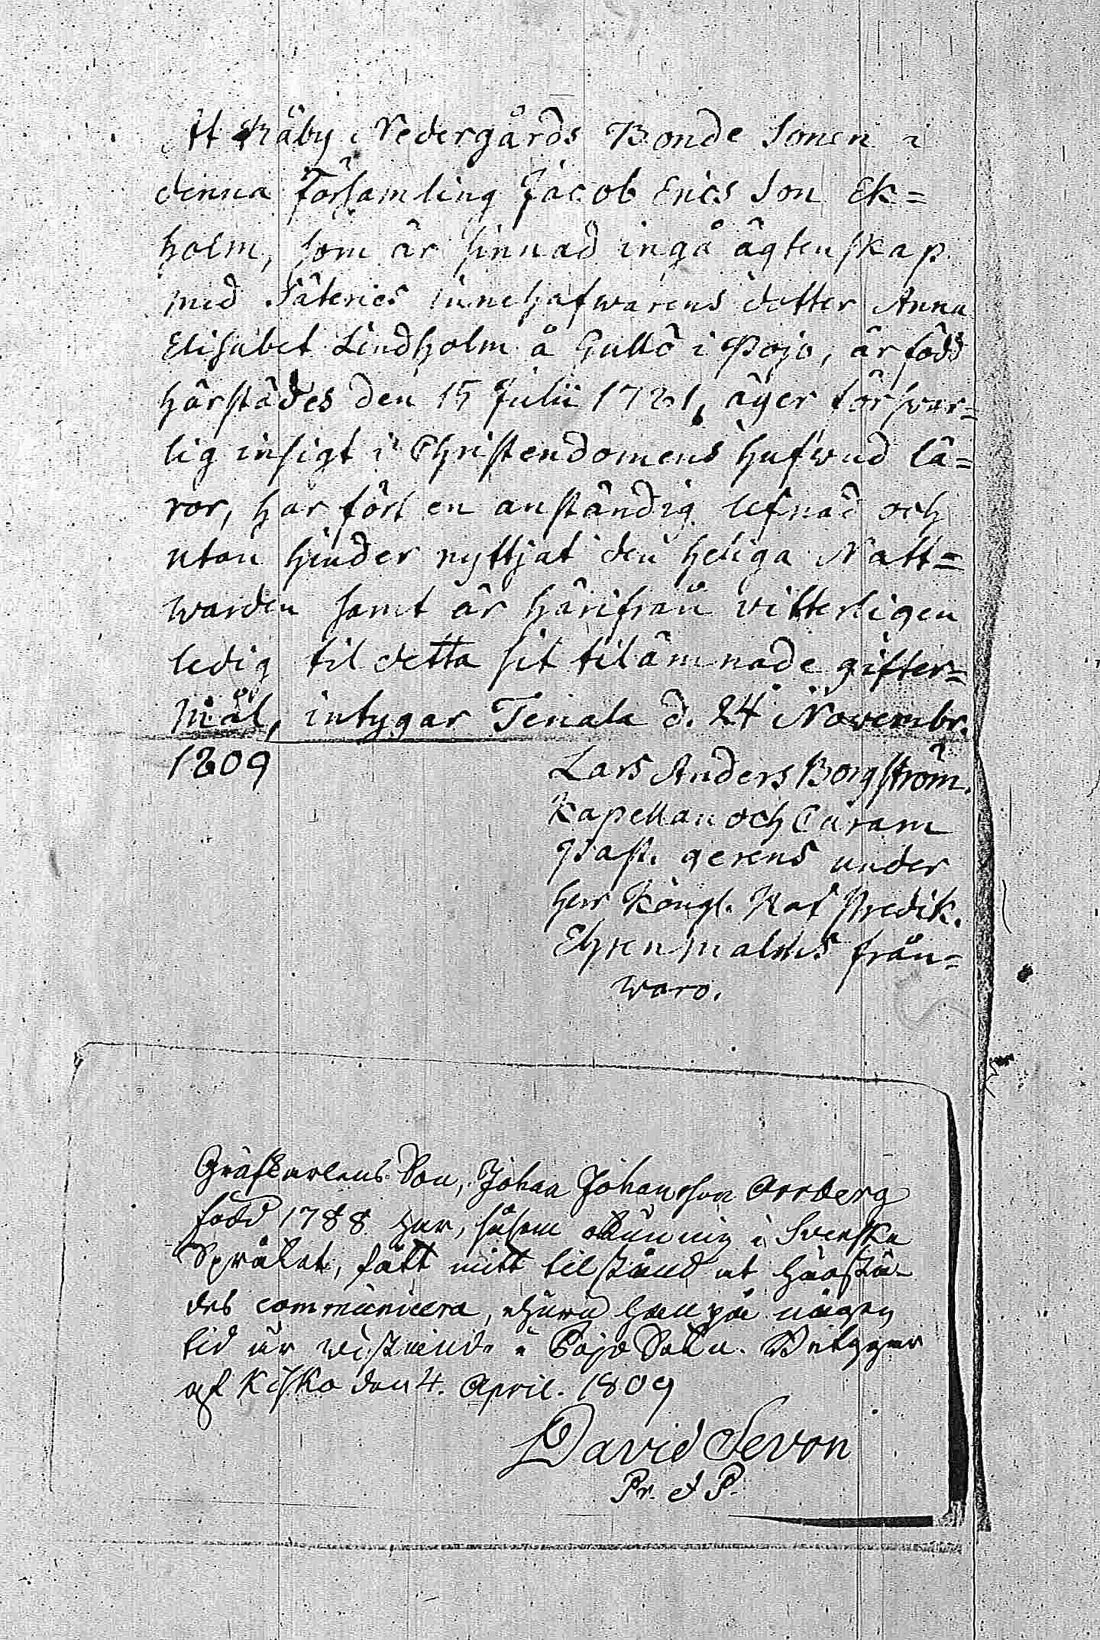 At Räby Nedergårds Bonde Sonen i
denna Församling Jacob Erics Son Ek=
holm, som är sinnad ingå ägtenskap
med Säteries innehafwarens dotter Anna
Elisabet Lindholm å Gullö i Pojo, är född
härstädes den 15 Julii 1781, äger försvar=
lig insigt i Christendomens hufwud lä=
ror, har fört en anständig lefnad och
utan hinder nyttjat den heliga Natt=
warden samt är härifrån vitterligen
ledig til detta sit tilämnade gifter=
mål, intygar Tenala d. 24 Novembr.
1809
Lars Anders Borgström.
Kapellan och Curam
Past. gerens under
Herr Kongl. Hof Predik.
Ehrenmalms från=
waro.
Son, Johan Johansson
född 1788 har, såsom okunnig i Svenska
Språket, fått mitt tilstånd at härstä-
des communicera, ehuru han på någon
tid är vistande i Pojo Sokn. Betygar
af Kisko den 4. April. 1809
David Sevon
Pr. et P.